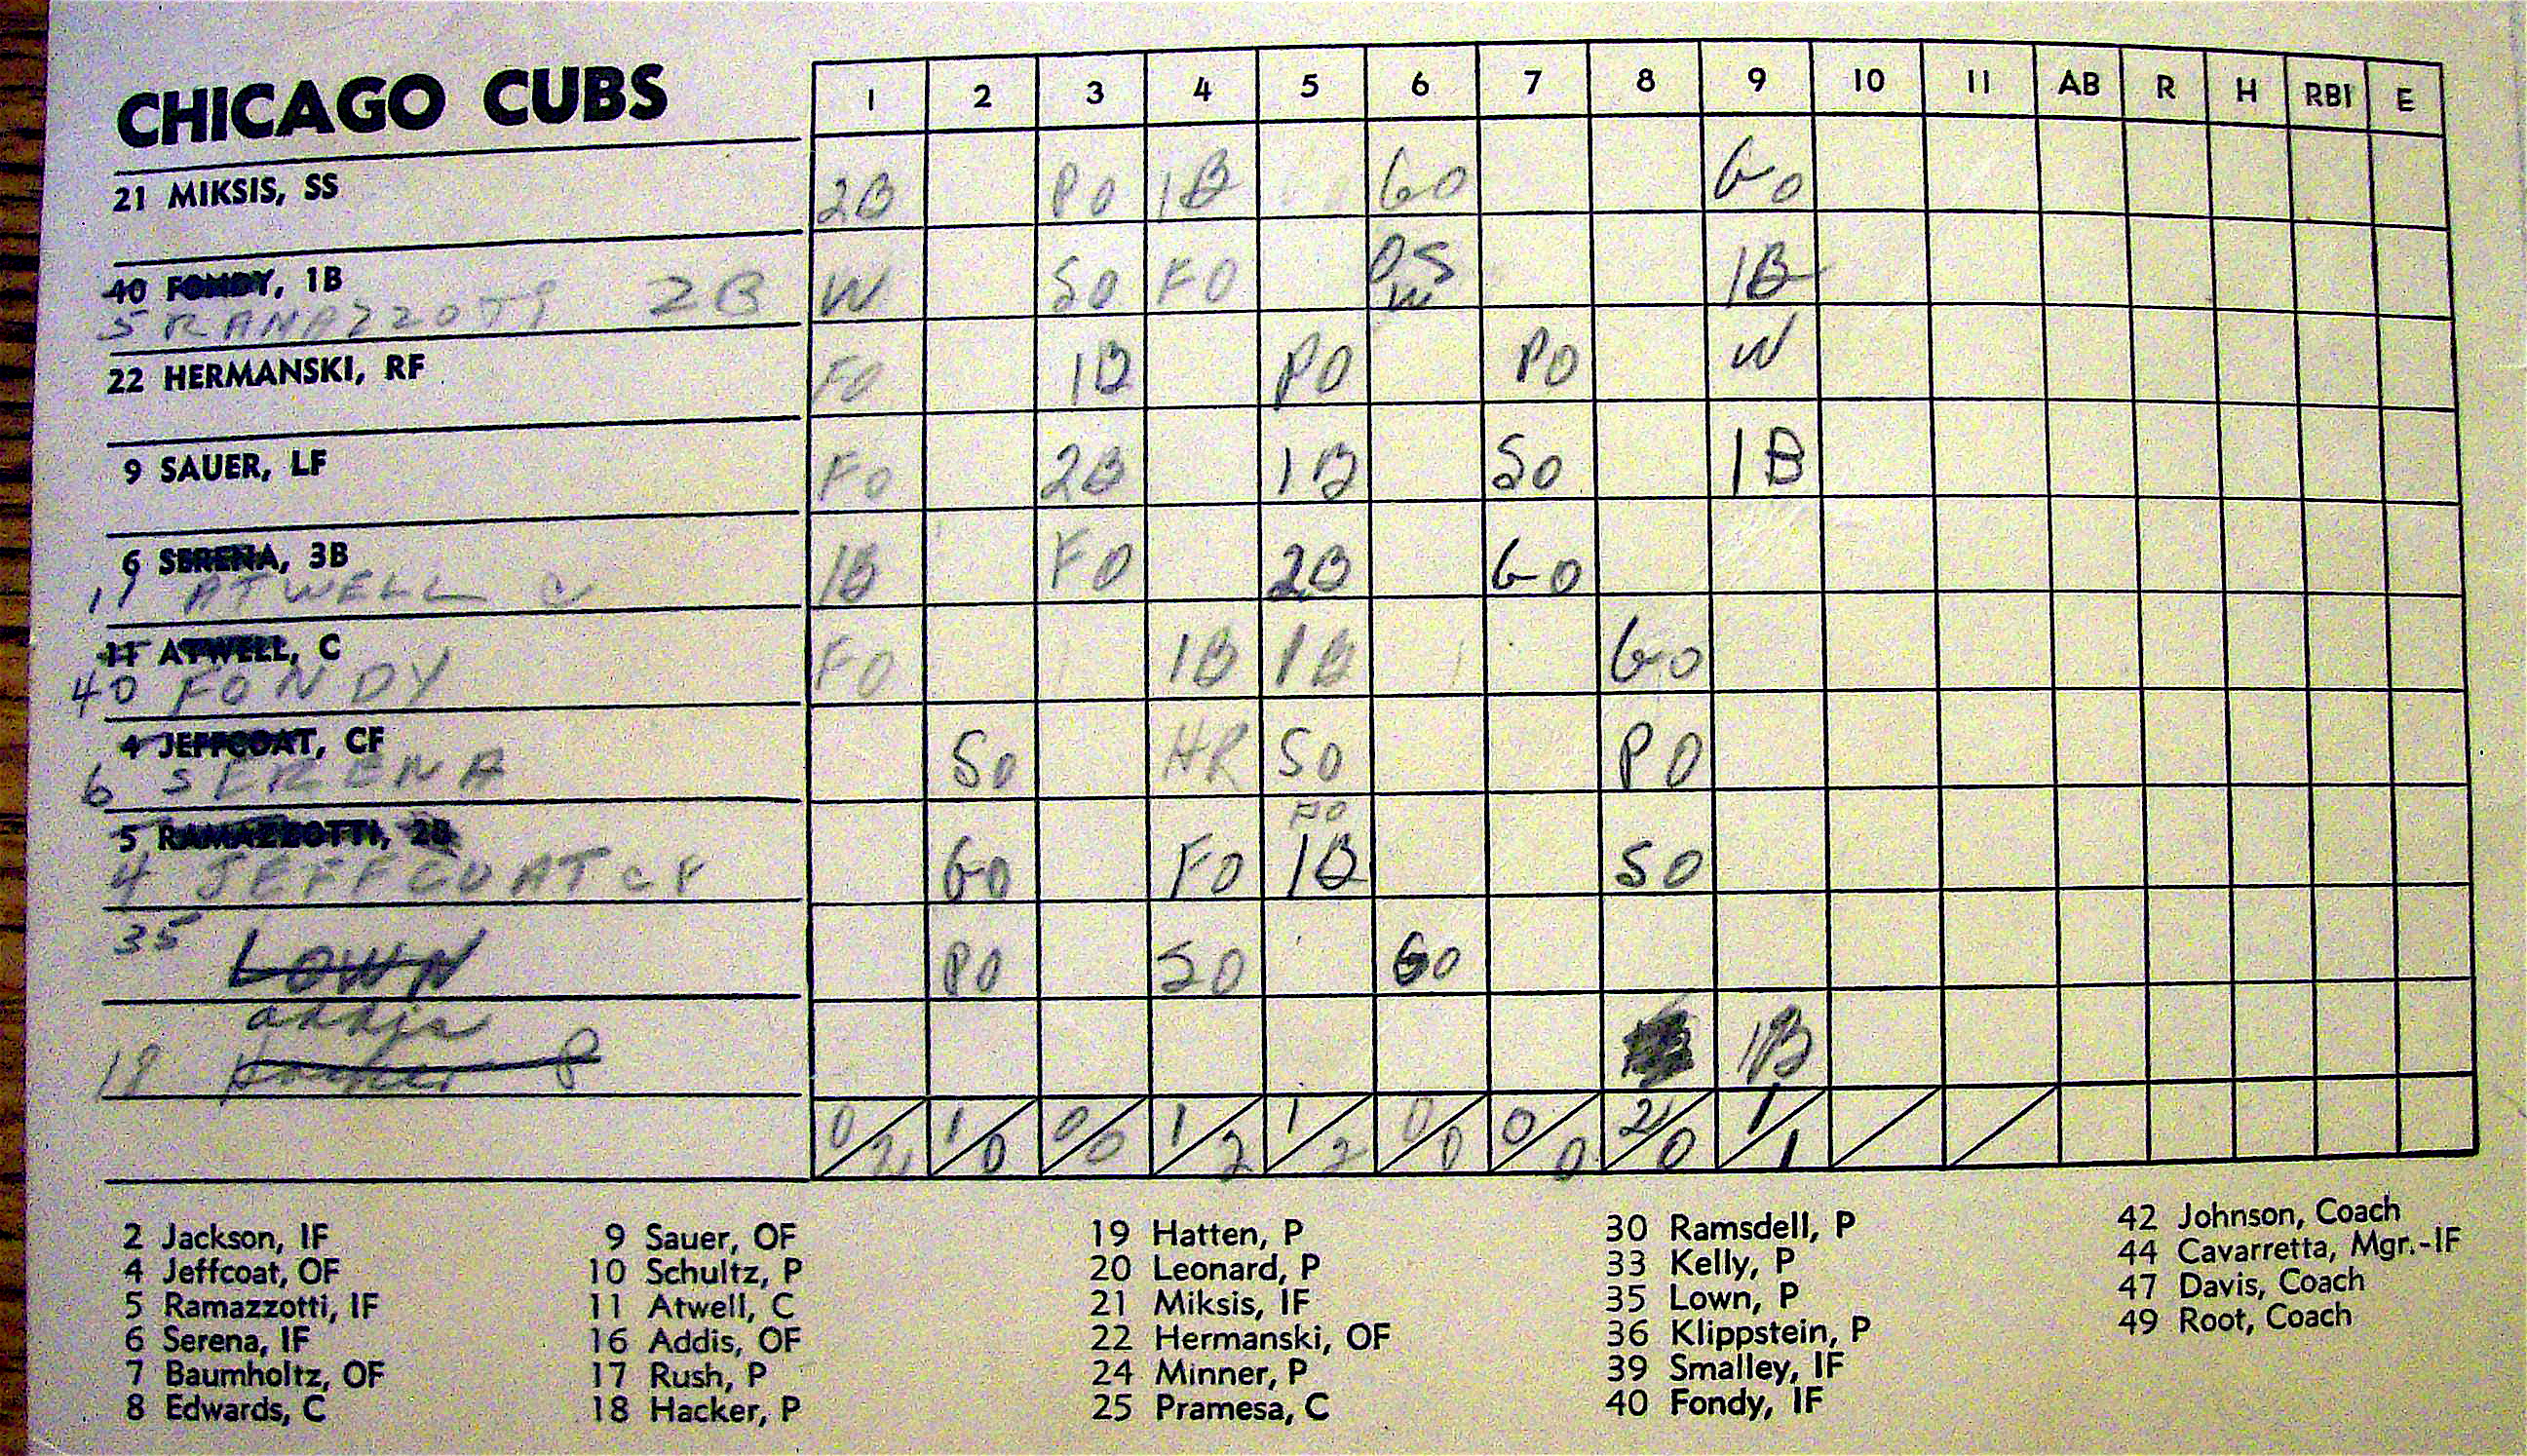 CHICAGO CUBS 1 2 3 4 5 6 7 8 9 10 11 AB R H RBI E
21 MIKSIS, SS 2B PO 1B GO GO
40 FONDY, 1B
5 RAMAZZOTTI 2B W SO FO W 1B
22 HERMANSKI, RF FO 1B PO PO W
9 SAUER, LF FO 2B 1B SO 1B
6 SERENA, 3B
11 ATWELL C 1B FO 2B GO
11 ATWELL, C
40 FONDY FO 1B 1B GO
4 JEFFCOAT, CF
6 SERENA SO HR SO PO
5 RAMAZZOTTI, 2B FO
4 JEFFCOAT CF GO FO 1B SO
35 LOWN PO SO GO
addis 1B
0/2 1/0 0/0 1/2 1/2 0/0 0/0 2/0 1/1
2 Jackson, IF 9 Sauer, OF 19 Hatten, P 30 Ramsdell, P 42 Johnson, Coach
4 Jeffcoat, OF 10 Schultz, P 20 Leonard, P 33 Kelly, P 44 Cavarretta, Mgr.-IF
5 Ramazzotti, IF 11 Atwell, C 21 Miksis, IF 35 Lown, P 47 Davis, Coach
6 Serena, IF 16 Addis, OF 22 Hermanski, OF 36 Klippstein, P 49 Root, Coach
7 Baumholtz, OF 17 Rush, P 24 Minner, P 39 Smalley, IF
8 Edwards, C 18 Hacker, P 25 Pramesa, C 40 Fondy, IF